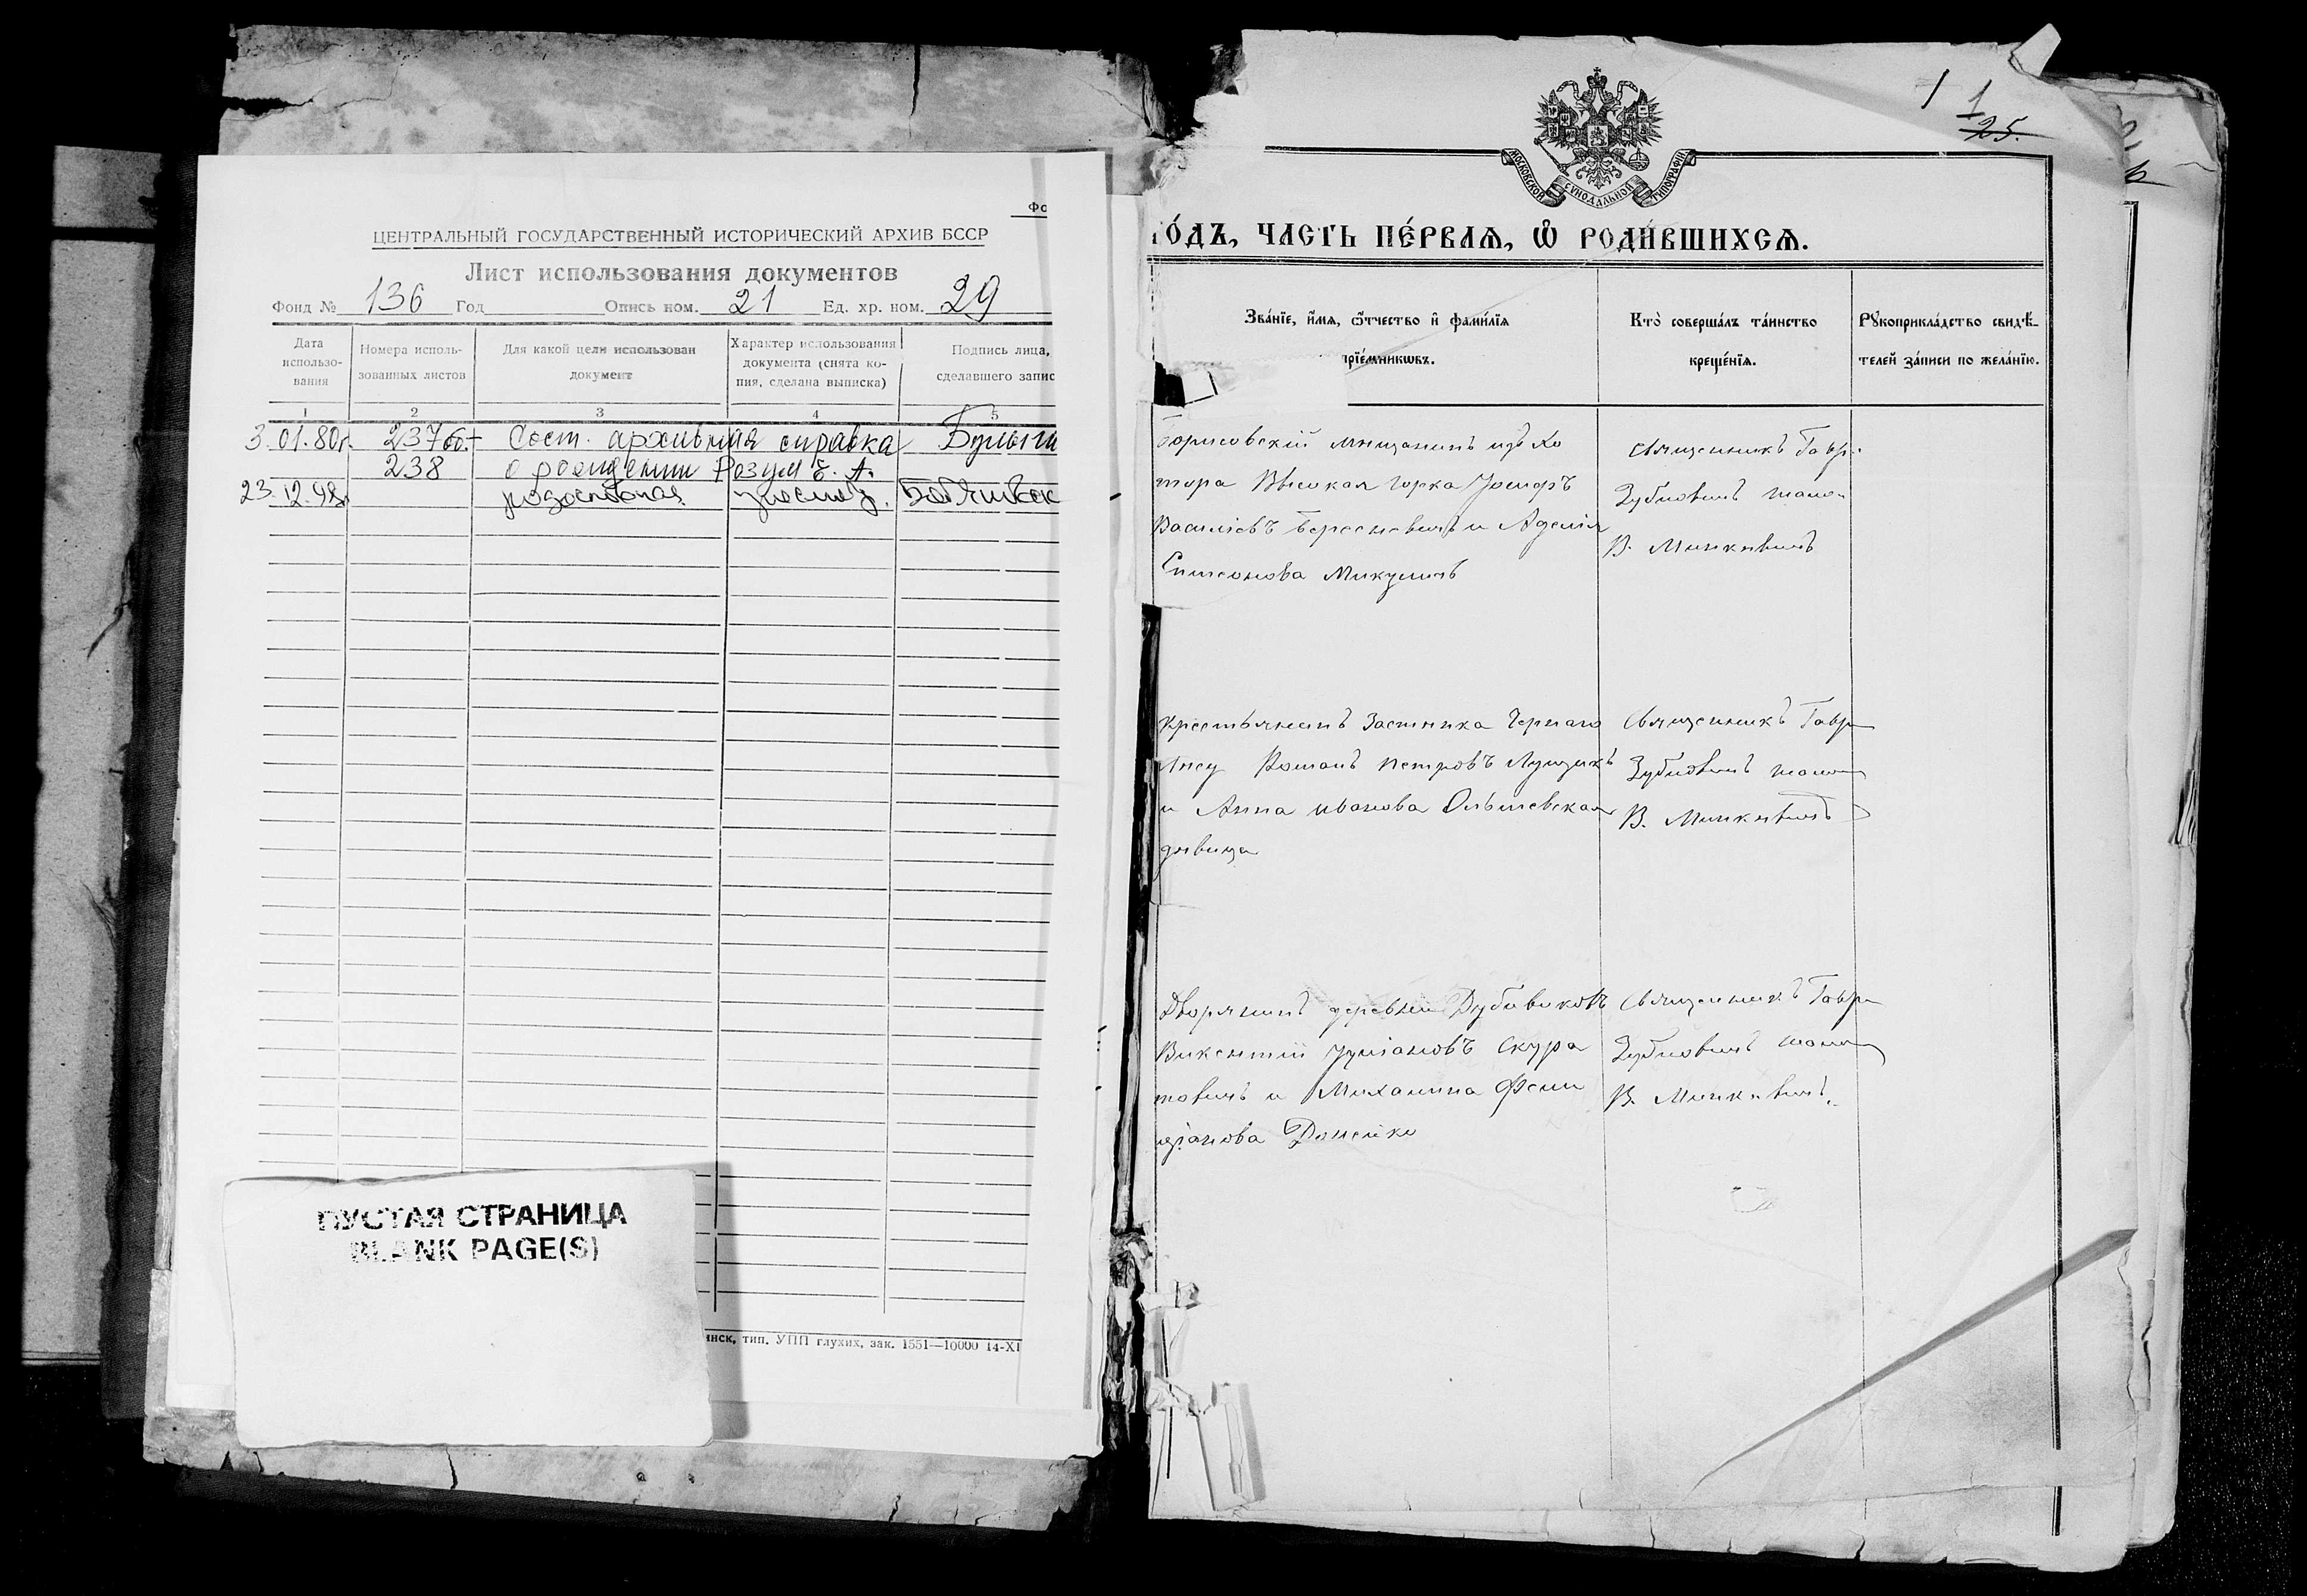 ЦЕНТРАЛЬНЫЙ ГОСУДАРСТВЕННЫЙ ИСТОРИЧЕСКИЙ АРХИВ БССР
Лист использования документов
Фонд № 136 Год Опись ном. 21 Ед. хр. ном. 29
Дата использо-вания
Номера исполь-зованных листов
Для какой цели использован документ
Характер использования документа (снята ко-пия, сделана выписка)
Подпись лица,
сделавшего запис
1 2 3 4 5
3.01.80г. 237об.+ Сост. архивная справка
238 о рождении Розум Е. А.
23.12.98
ПУСТАЯ СТРАНИЦА
BLANK PAGE(S)
инск, тип. УПП глухих, зак. 1551—10000 14-XI
1 1
25.
МОСКОВСКОЙ СѴНОДАЛЬНОЙ ТИПОГРАФІИ
ГО́ДЪ, ЧАСТЬ ПЕ́РВАѦ, Ѡ҆ РОДИ́ВШИХСѦ.
Зва́нїе, и҆́мѧ, ѻ҆́тчество и҆ фами́лїѧ
прїе́мникѡвъ.
Кто̀ соверша́лъ та́инство
креще́нїѧ.
Рꙋкоприкла́дство свидѣ́-
телей за́писи по жела́нїю.
Борисовскій мѣщанинъ изъ Хо
тора Высокая Горка Іосифъ
Василіевъ Бересневичъ и Аделія
Симеонова Микуличъ
Священникъ Гавр.
Зубковичъ
В. Мицкевичъ
Крестьянинъ Застѣнка Чернаго
Лѣсу Романъ Петровъ Луцикъ
и Анна Иванова Ольшевская
дѣвица
Священникъ Гавр
Зубковичъ
В. Мицкевичъ
Дворянинъ деревни Дубовиковъ
Викентій Юліановъ Скура
товичъ и Михалина Фели
ціанова Данейко
Священникъ Гавр
Зубковичъ
В. Мицкевичъ